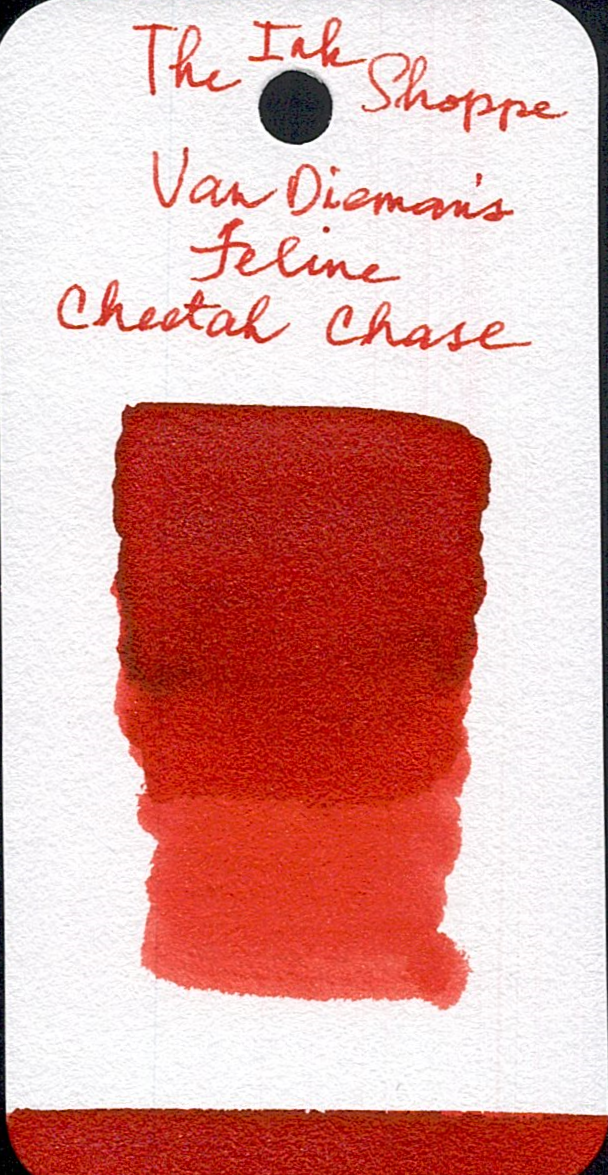 The Ink Shoppe
Van Dieman's
Feline
Cheetah Chase